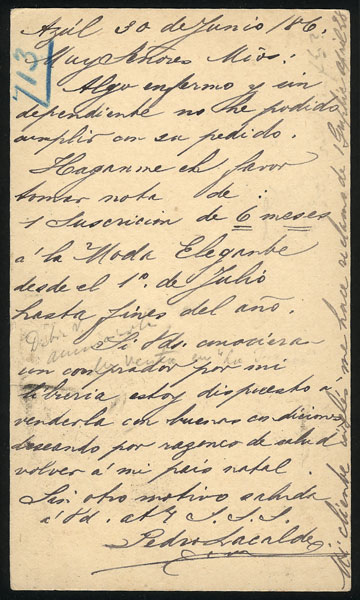 Azúl 30 de Junio 186.
Muy Señores Mios:
713
Algo enfermo y sin
dependiente no he podido
cumplir con su pedido.
Haganme el favor
tomar nota de
1 Suscricion de 6 meses
á la Moda Elegante
desde el 1º. de Julio
hasta fines del año.
Si Vds. conocieran
un comprador por mi
libreria estoy dispuesto á
venderla con buenas condiciones
deseando por razones de salud
volver á mi país natal.
Sin otro motivo saluda
á Vd. at S. S. S.
Pedro Lacalde
Mi cliente me hace reclamo de